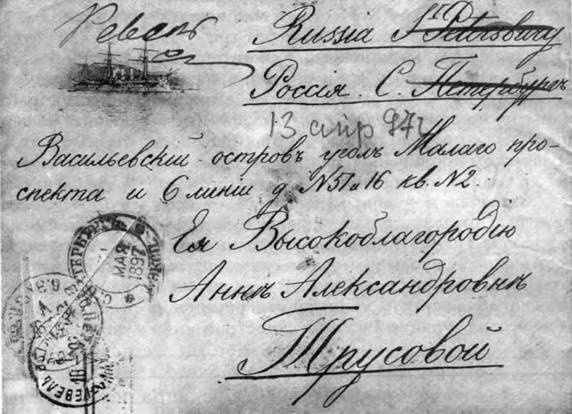 Ревель
Russia St Petersburg
Россія. С. Петербургъ
13 апр 97 г
Васильевскій островъ уголъ Малаго про-
спекта и 6 линіи д N51 и 16 кв. N2.
Ея Высокоблагородію
Аннѣ Александровнѣ
Трусовой
МАЯ
1897
РЕВЕЛЬ